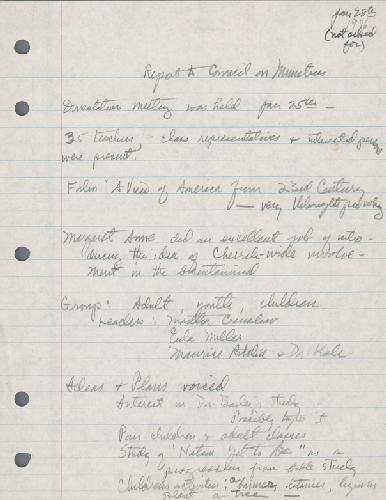 Jan 28th
(not asked
for)
Report to Council on Ministries
Orientation meeting was held Jan 25th —
35 teachers - class representatives & interested
were present.
Film "A View of America from 23rd Century
— very thought provoking
Margaret Anne did an excellent job of intro-
ducing the idea of Church-wide involve-
ment in the Bicentennial
Groups: Adult, youth, children
Leaders: Martha Crenshaw
Eula Miller
Maurice & Dr. Hale
Ideas & Plans voiced
Interest in Dr. study -
Possibly tape it
Pair children & adult classes
Study of "Nation Yet to Be" as a
progression from Bible study
Children's activities: banners,
plant a tree —